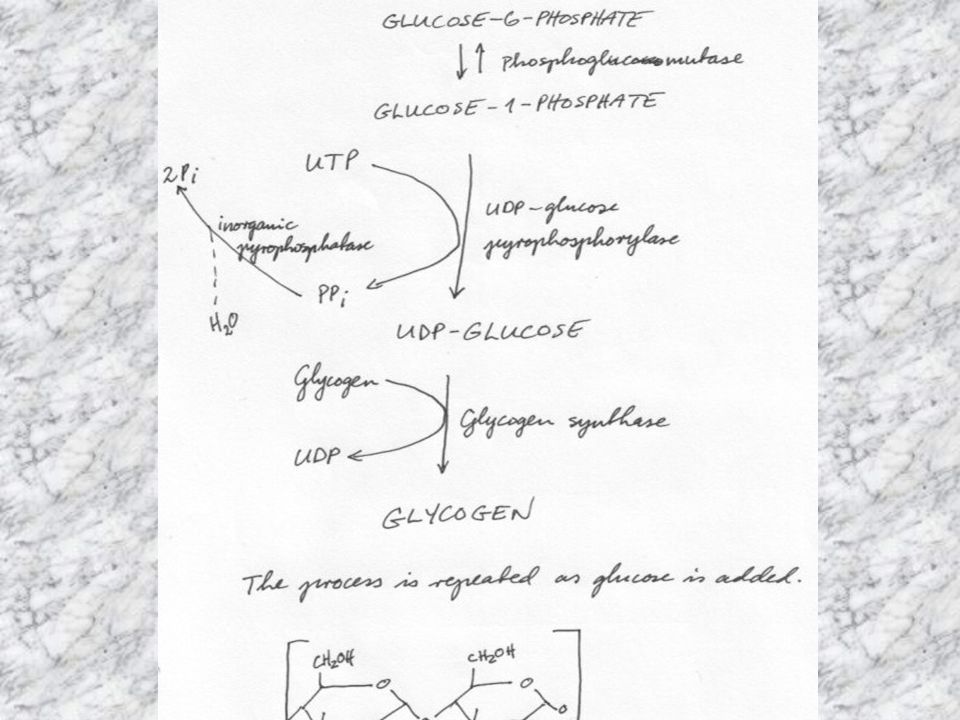 GLUCOSE-6-PHOSPHATE
Phosphoglucomutase
GLUCOSE-1-PHOSPHATE
UTP
2Pi
UDP-glucose
pyrophosphorylase
inorganic
pyrophosphatase
PPi
H2O
UDP-GLUCOSE
Glycogen
Glycogen synthase
UDP
GLYCOGEN
The process is repeated as glucose is added.
CH2OH CH2OH
O O
O
O